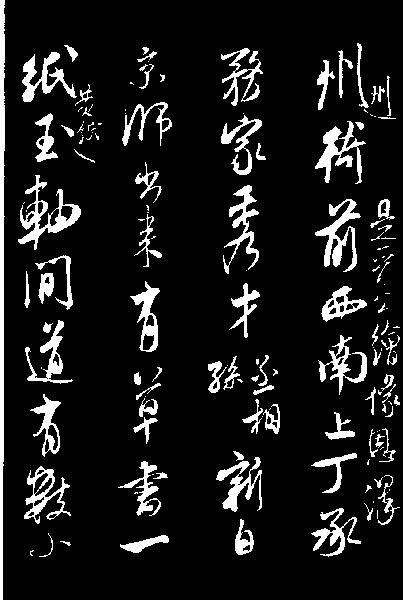 州衙前西南上丁承
州
是公繪像恩澤
務家秀才丞相孫新自
京師出來有草書一
紙黃玉軸間道有數小